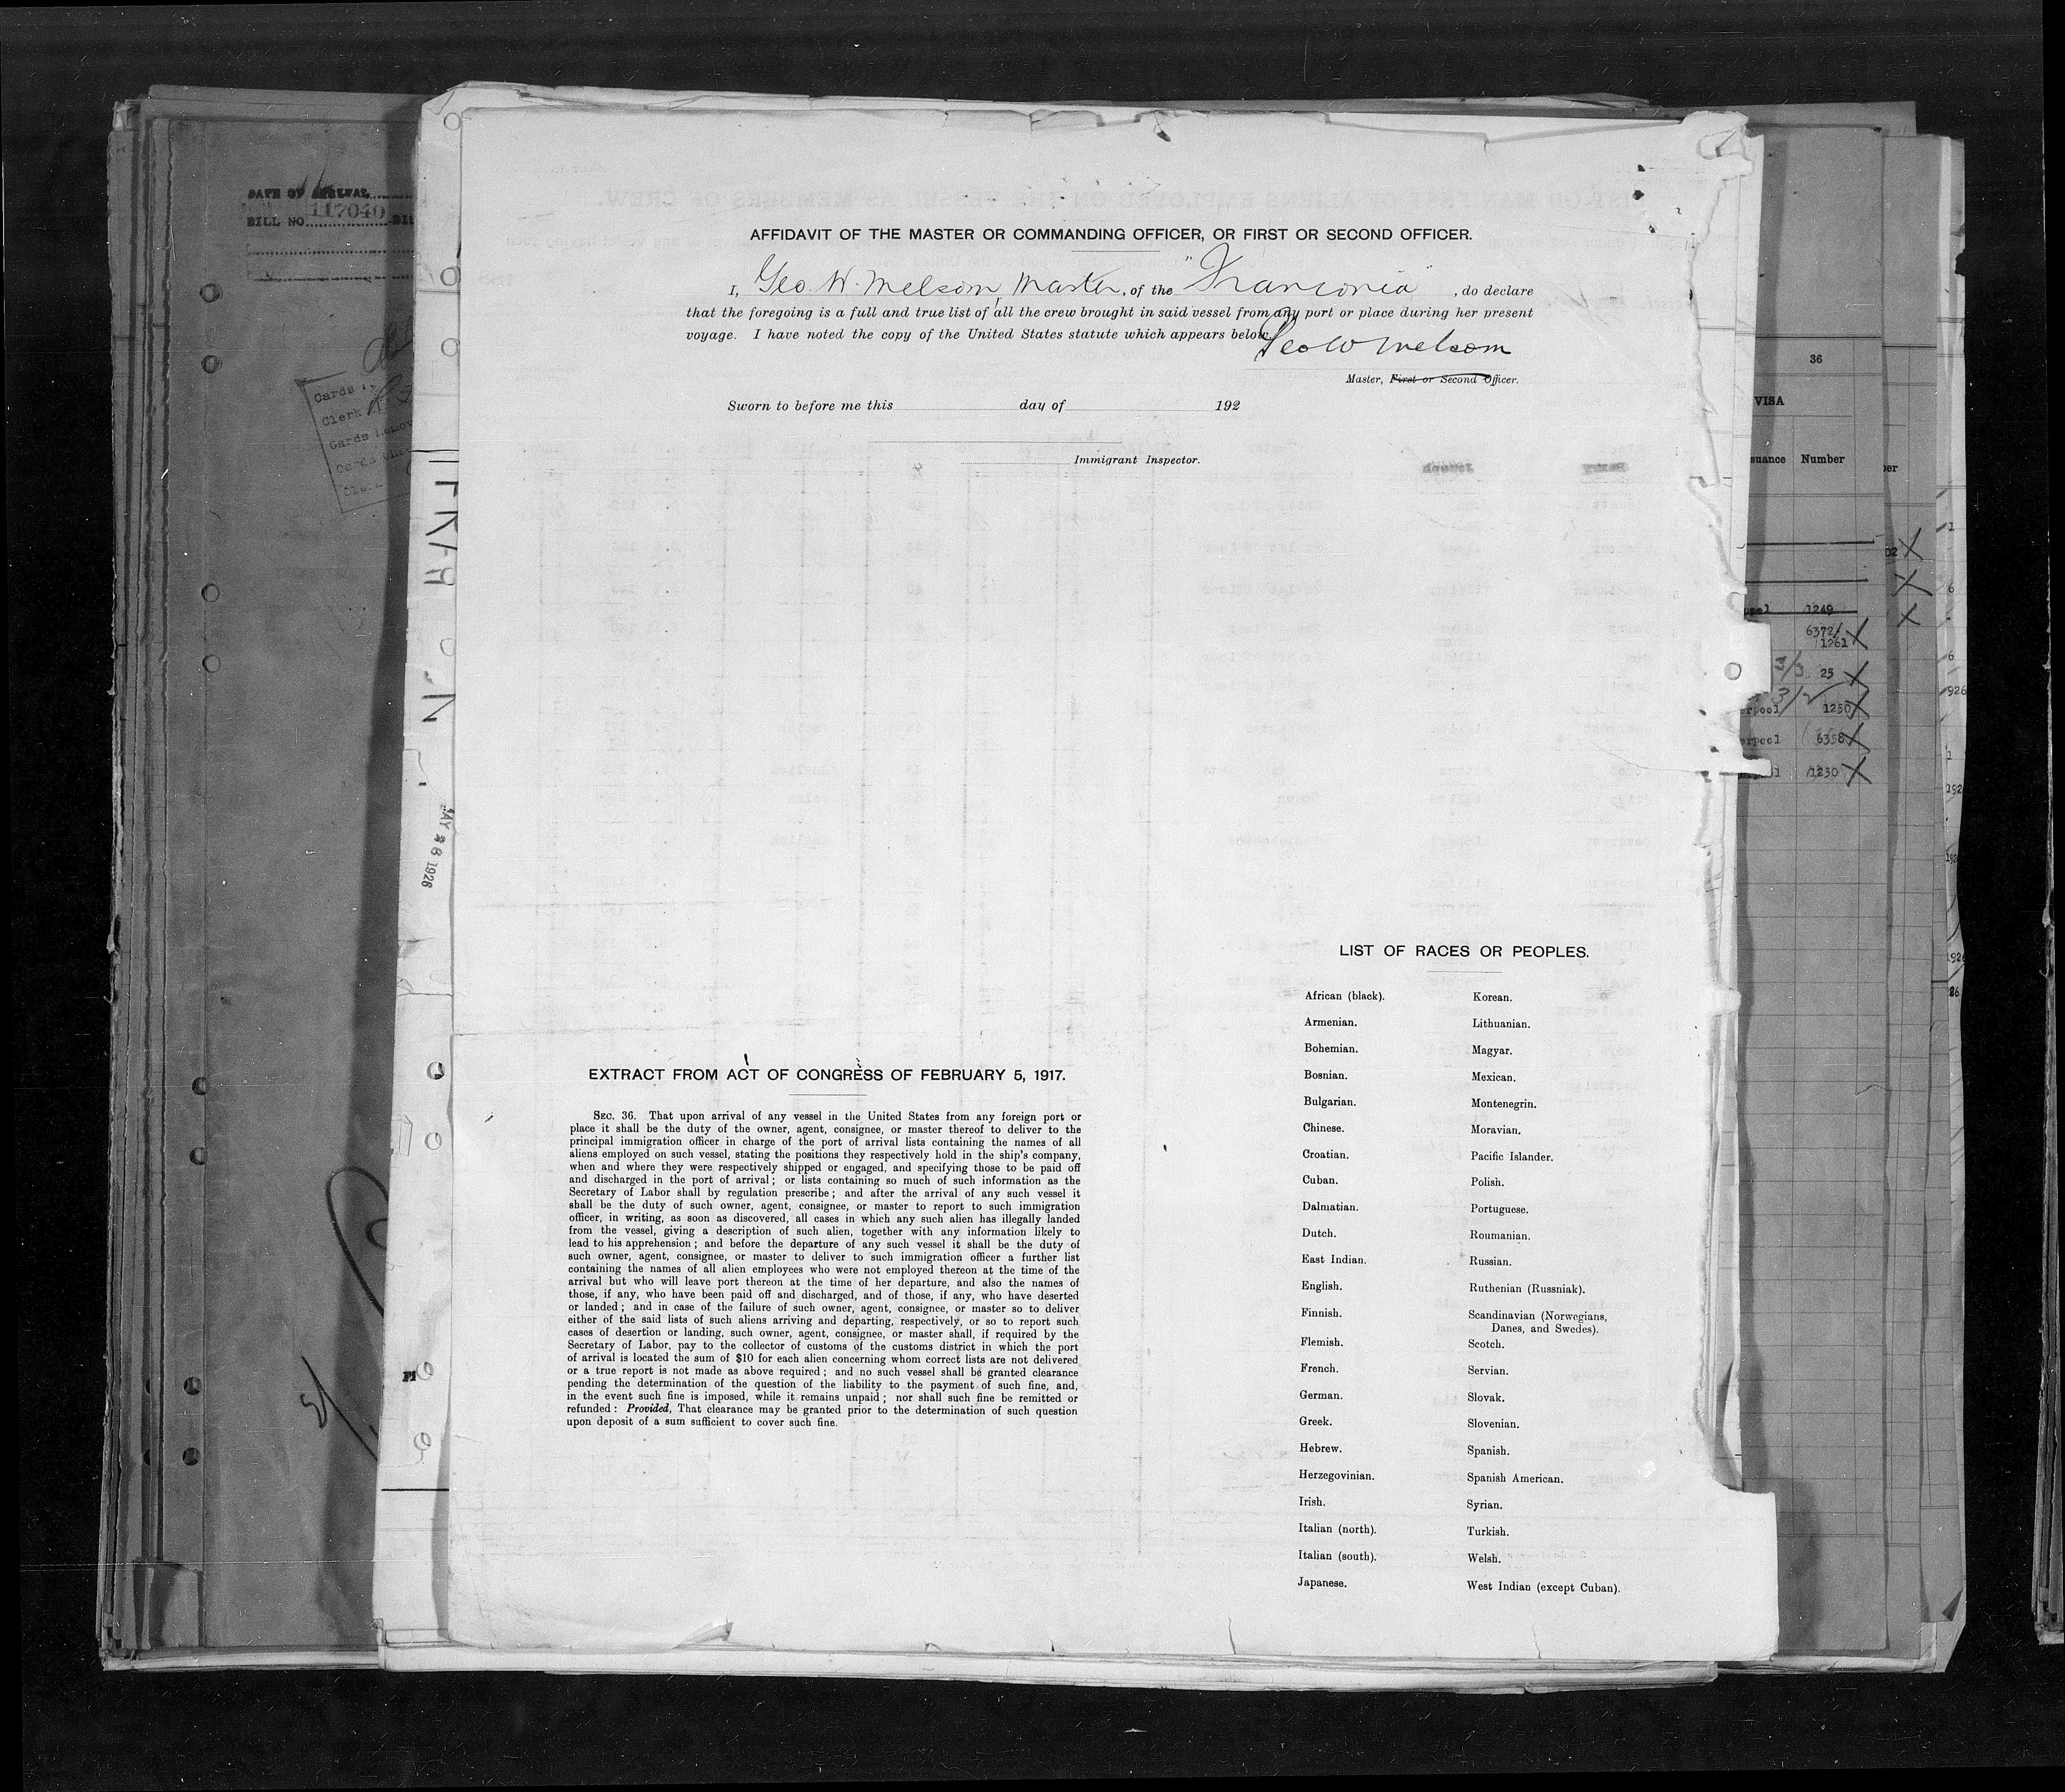 AFFIDAVIT OF THE MASTER OR COMMANDING OFFICER, OR FIRST OR SECOND OFFICER.
I, Geo. W. Melsom, Master, of the "Franconia", do declare
that the foregoing is a full and true list of all the crew brought in said vessel from any port or place during her present
voyage. I have noted the copy of the United States statute which appears below.
Geo W Melsom
Master, First or Second Officer.
Sworn to before me this day of 192
Immigrant Inspector.
EXTRACT FROM ACT OF CONGRESS OF FEBRUARY 5, 1917.
SEC. 36. That upon arrival of any vessel in the United States from any foreign port or
place it shall be the duty of the owner, agent, consignee, or master thereof to deliver to the
principal immigration officer in charge of the port of arrival lists containing the names of all
aliens employed on such vessel, stating the positions they respectively hold in the ship's company,
when and where they were respectively shipped or engaged, and specifying those to be paid off
and discharged in the port of arrival; or lists containing so much of such information as the
Secretary of Labor shall by regulation prescribe; and after the arrival of any such vessel it
shall be the duty of such owner, agent, consignee, or master to report to such immigration
officer, in writing, as soon as discovered, all cases in which any such alien has illegally landed
from the vessel, giving a description of such alien, together with any information likely to
lead to his apprehension; and before the departure of any such vessel it shall be the duty of
such owner, agent, consignee, or master to deliver to such immigration officer a further list
containing the names of all alien employees who were not employed thereon at the time of the
arrival but who will leave port thereon at the time of her departure, and also the names of
those, if any, who have been paid off and discharged, and of those, if any, who have deserted
or landed; and in case of the failure of such owner, agent, consignee, or master so to deliver
either of the said lists of such aliens arriving and departing, respectively, or so to report such
cases of desertion or landing, such owner, agent, consignee, or master shall, if required by the
Secretary of Labor, pay to the collector of customs of the customs district in which the port
of arrival is located the sum of $10 for each alien concerning whom correct lists are not delivered
or a true report is not made as above required; and no such vessel shall be granted clearance
pending the determination of the question of the liability to the payment of such fine, and,
in the event such fine is imposed, while it remains unpaid; nor shall such fine be remitted or
refunded: Provided, That clearance may be granted prior to the determination of such question
upon deposit of a sum sufficient to cover such fine.
LIST OF RACES OR PEOPLES.
African (black).
Armenian.
Bohemian.
Bosnian.
Bulgarian.
Chinese.
Croatian.
Cuban.
Dalmatian.
Dutch.
East Indian.
English.
Finnish.
Flemish.
French.
German.
Greek.
Hebrew.
Herzegovinian.
Irish.
Italian (north).
Italian (south).
Japanese.
Korean.
Lithuanian.
Magyar.
Mexican.
Montenegrin.
Moravian.
Pacific Islander.
Polish.
Portuguese.
Roumanian.
Russian.
Ruthenian (Russniak).
Scandinavian (Norwegians,
Danes, and Swedes).
Scotch.
Servian.
Slovak.
Slovenian.
Spanish.
Spanish American.
Syrian.
Turkish.
Welsh.
West Indian (except Cuban).
DATE OF ARRIVAL
BILL NO. 117040
Cards
Clerk
Cards
Cards
1926
36
VISA
Number
1249
6372
1261
3/3 25
1250
6358
1250